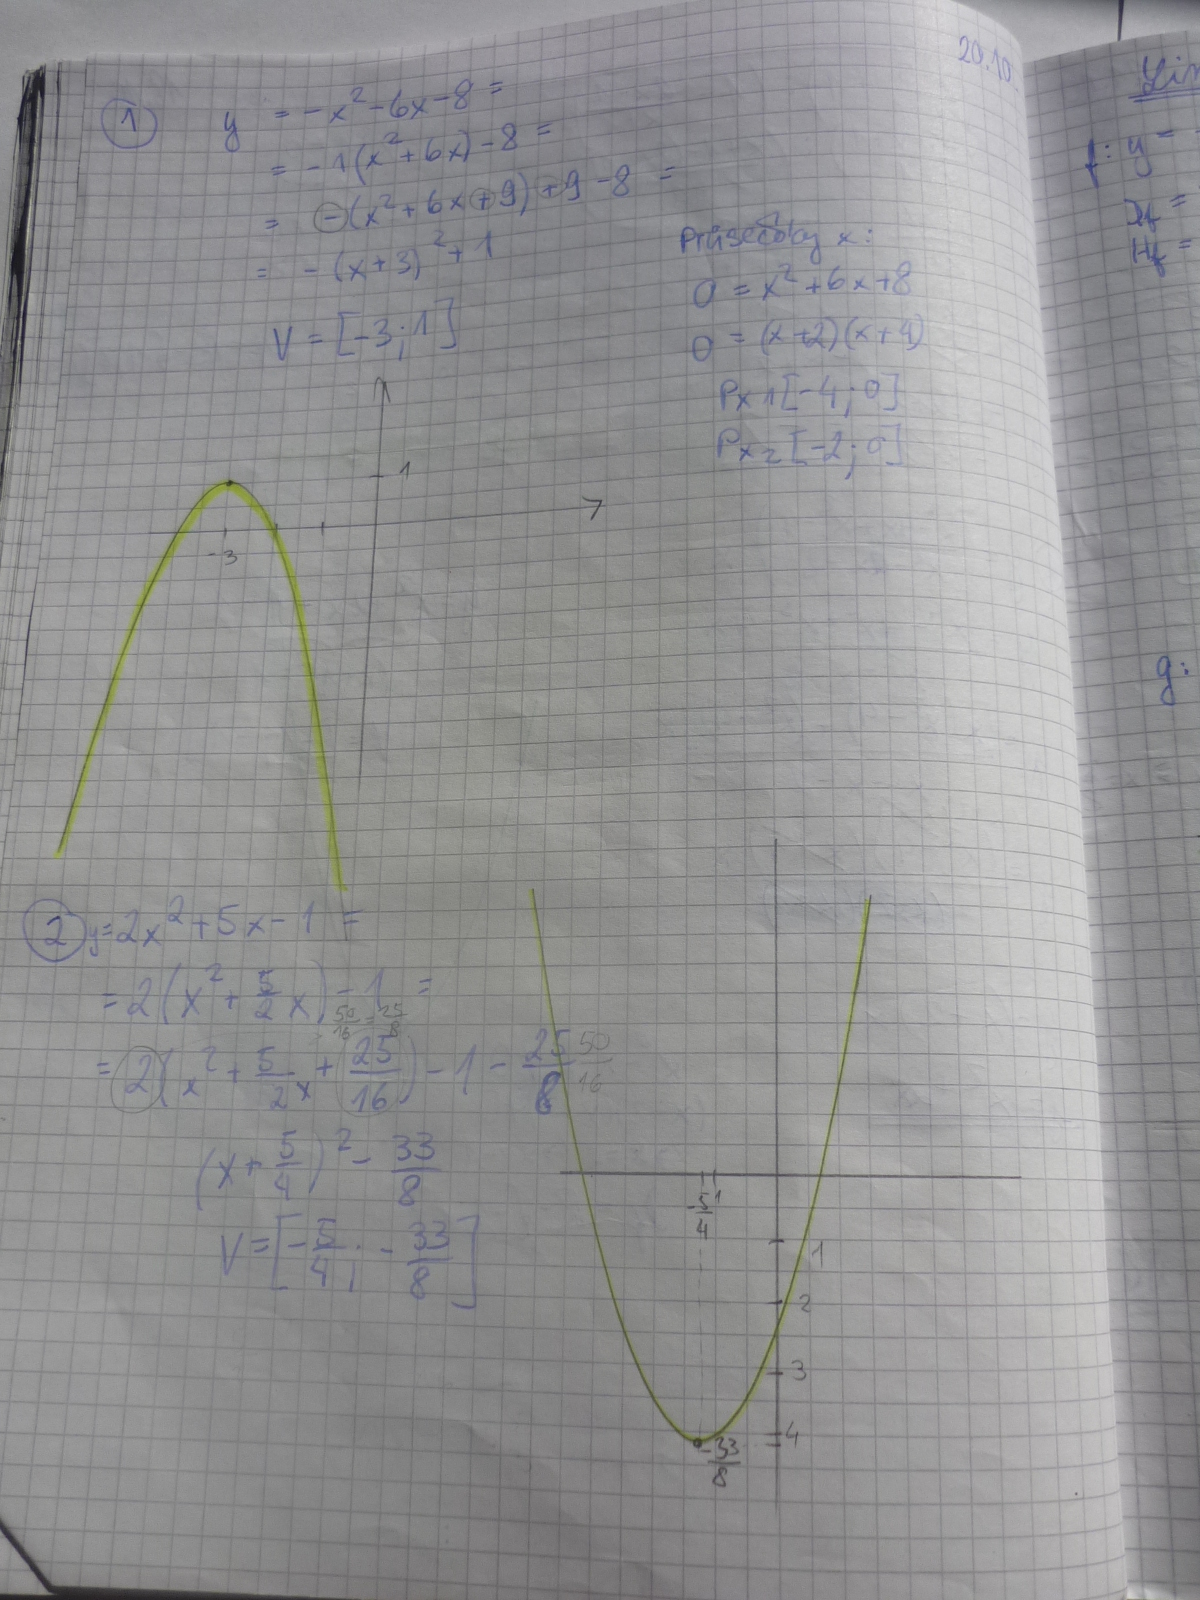 20.10.
① y = -x² - 6x - 8 =
= -1(x² + 6x) - 8 =
= -(x² + 6x + 9) + 9 - 8 =
= -(x + 3)² + 1
V = [-3; 1]
Průsečíky x:
0 = x² + 6x + 8
0 = (x + 2)(x + 4)
Px1 [-4; 0]
Px2 [-2; 0]
1
-3
② y = 2x² + 5x - 1 =
= 2(x² + 5/2 x) - 1 =
50/16 = 25/8
= 2(x² + 5/2 x + 25/16) - 1 - 25/8 50/16
(x + 5/4)² - 33/8
V = [-5/4; -33/8]
-5/4
1
1
2
3
4
-33/8
f: y =
Df =
Hf =
g: